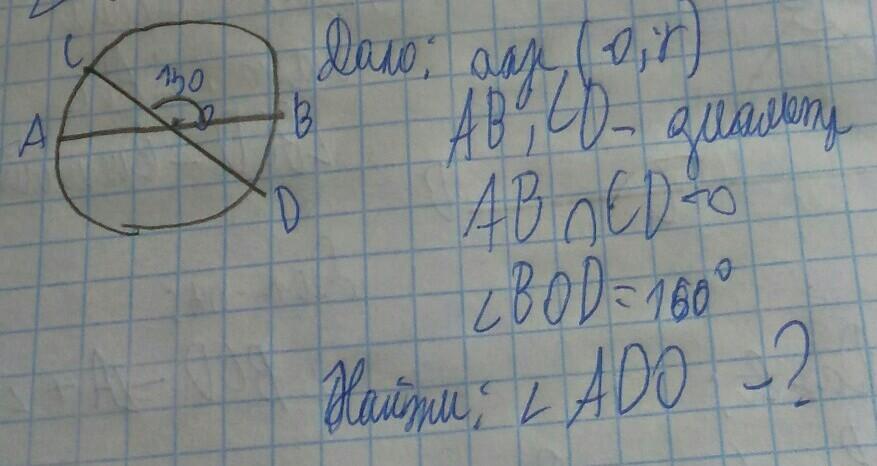 C
150
A
O
B
D
Дано: окр (O, r)
AB, CD - диаметр
AB ∩ CD = O
∠BOD = 160°
Найти: ∠ADO - ?